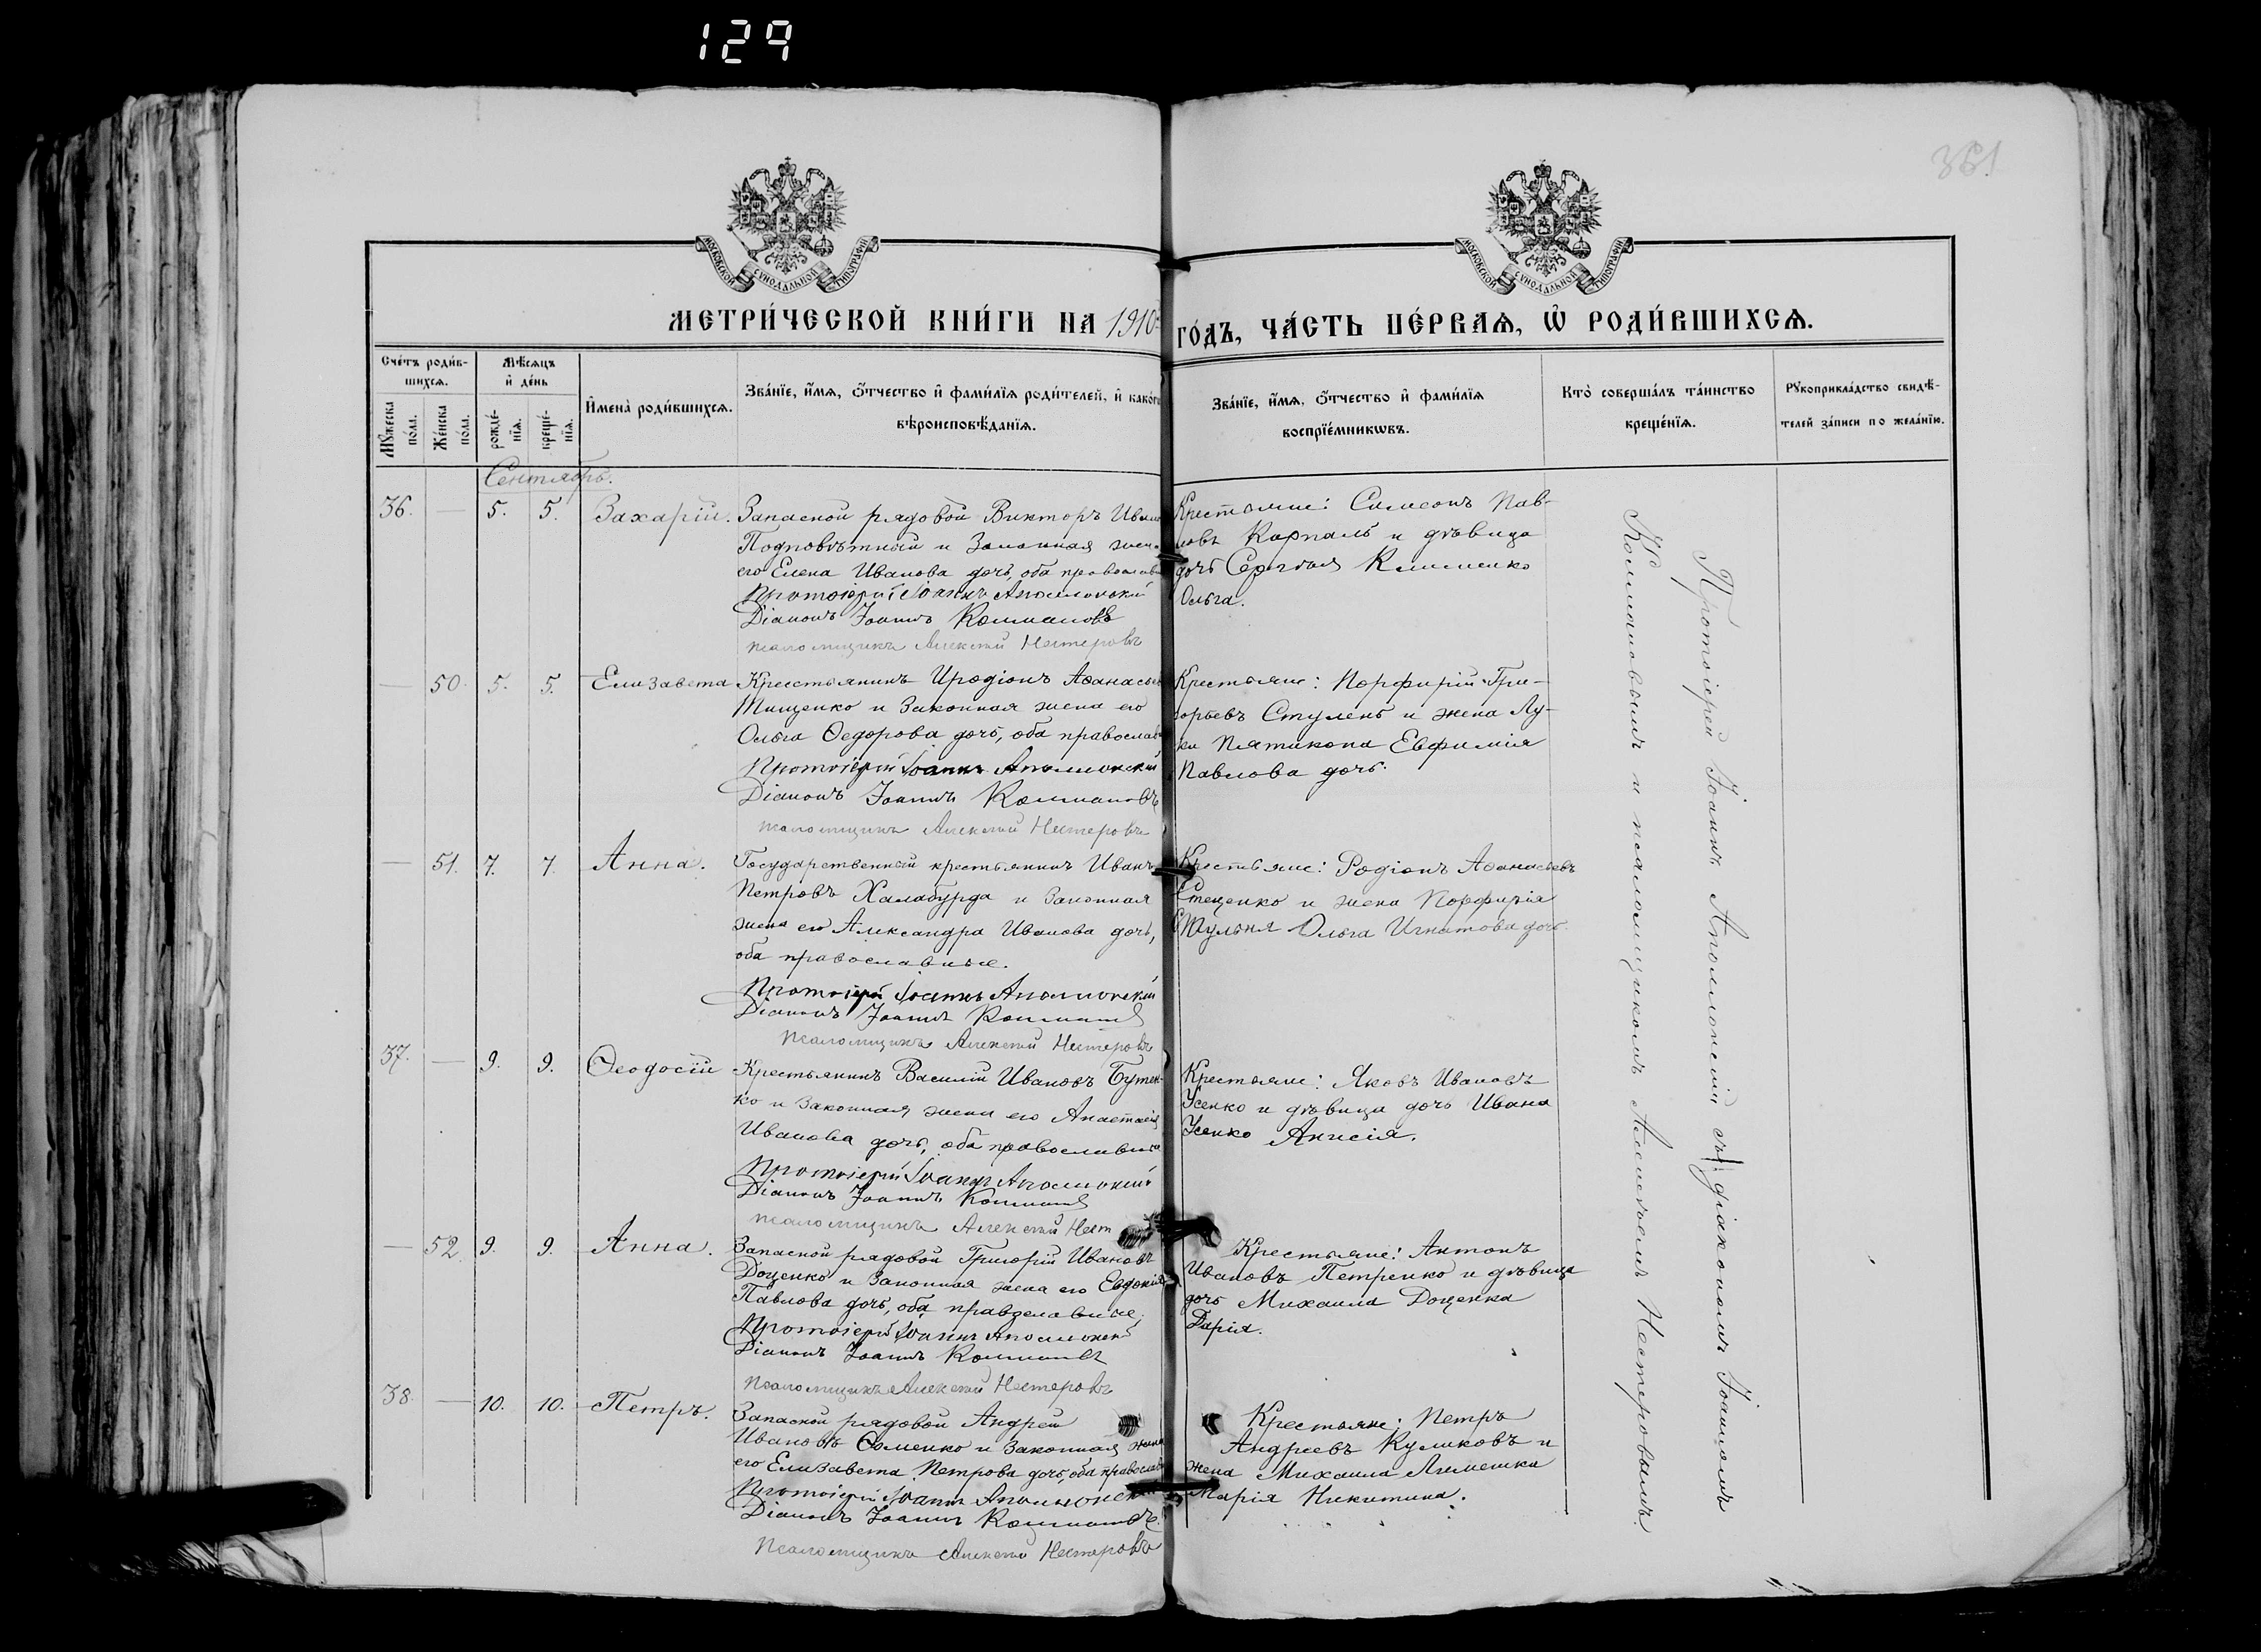 129
361
МОСКОВСКОЙ СѴНОДАЛЬНОЙ ТИПОГРАФІИ
МОСКОВСКОЙ СѴНОДАЛЬНОЙ ТИПОГРАФІИ
МЕТРИ́ЧЕСКОЙ КНИ́ГИ НА 1910
ГО́ДЪ, ЧА́СТЬ ПЕ́РВАѦ, Ѡ҆ РОДИ́ВШИХСѦ.
Сче́тъ роди́в-
шихсѧ.
Мꙋ́жеска по́ла.
Же́нска по́ла.
Мѣ́сѧцъ
и҆ де́нь
рожде́-нїѧ.
креще́-нїѧ.
И҆мена̀ роди́вшихсѧ.
Зва́нїе, и҆́мѧ, ѻ҆́тчество и҆ фами́лїѧ роди́телей, и҆ како́гѡ
вѣроисповѣ́данїѧ.
Зва́нїе, и҆́мѧ, ѻ҆́тчество и҆ фами́лїѧ
воспрїе́мникѡвъ.
Кто̀ соверша́лъ та́инство
креще́нїѧ.
Рꙋкоприкла́дство свидѣ́-
телей за́писи по жела́нїю.
Сентябрь.
36. — 5. 5. Захарій. Запасной рядовой Викторъ Иван
и законная жен
его Елена Иванова дочь, оба православ
Протоіерей Іоаннъ Аполлонскій
Діаконъ Іоаннъ Колмаковъ
Псаломщикъ Алексѣй Нестеровъ
Крестьяне: Симеонъ Пав-
ловъ и дѣвица
дочь Сергѣя Клименко
Ольга.
— 50. 5. 5. Елизавета Крестьянинъ Иродіонъ Аѳанасьев
Тищенко и законная жена его
Ольга Ѳедорова дочь, оба православ
Протоіерей Іоаннъ Аполлонскій
Діаконъ Іоаннъ Колмаковъ
Псаломщикъ Алексѣй Нестеровъ
Крестьяне: Порфирій Гри-
горьевъ Стулень и жена Лу-
ки Пятикопа Евфимія
Павлова дочь.
— 51. 7. 7. Анна. Государственный крестьянинъ Иванъ
Петровъ Халабурда и законная
жена его Александра Иванова дочь,
оба православные.
Протоіерей Іоаннъ Аполлонскій
Діаконъ Іоаннъ Колмаковъ
Псаломщикъ Алексѣй Нестеровъ
Крестьяне: Родіонъ Аѳанасьевъ
Стеценко и жена Порфирія
Стульня Ольга Игнатова дочь
37. — 9. 9. Ѳеодосій Крестьянинъ Василій Ивановъ Бутен-
ко и законная жена его Анастасія
Иванова дочь, оба православные
Протоіерей Іоаннъ Аполлонскій
Діаконъ Іоаннъ Колмаковъ
Псаломщикъ Алексѣй Нест
Крестьяне: Яковъ Ивановъ
Усенко и дѣвица дочь Ивана
Усенко Анисія.
— 52. 9. 9. Анна. Запасной рядовой Григорій Ивановъ
Доценко и законная жена его Евдокія
Павлова дочь, оба православные.
Протоіерей Іоаннъ Аполлонскій
Діаконъ Іоаннъ Колмаковъ
Псаломщикъ Алексѣй Нестеровъ
Крестьяне: Антонъ
Ивановъ Петренко и дѣвица
дочь Михаила Доценка
Дарія.
38. — 10. 10. Петръ. Запасной рядовой Андрей
Ивановъ и законная жена
его Елизавета Петрова дочь, оба православ
Протоіерей Іоаннъ Аполлонскій
Діаконъ Іоаннъ Колмаковъ
Псаломщикъ Алексѣй Нестеровъ
Крестьяне: Петръ
Андреевъ Куликовъ и
жена Михаила
Марія Никитина.
Протоіерей Іоаннъ Аполлонскій съ діакономъ Іоанномъ
Колмаковымъ и псаломщикомъ Алексѣемъ Нестеровымъ.